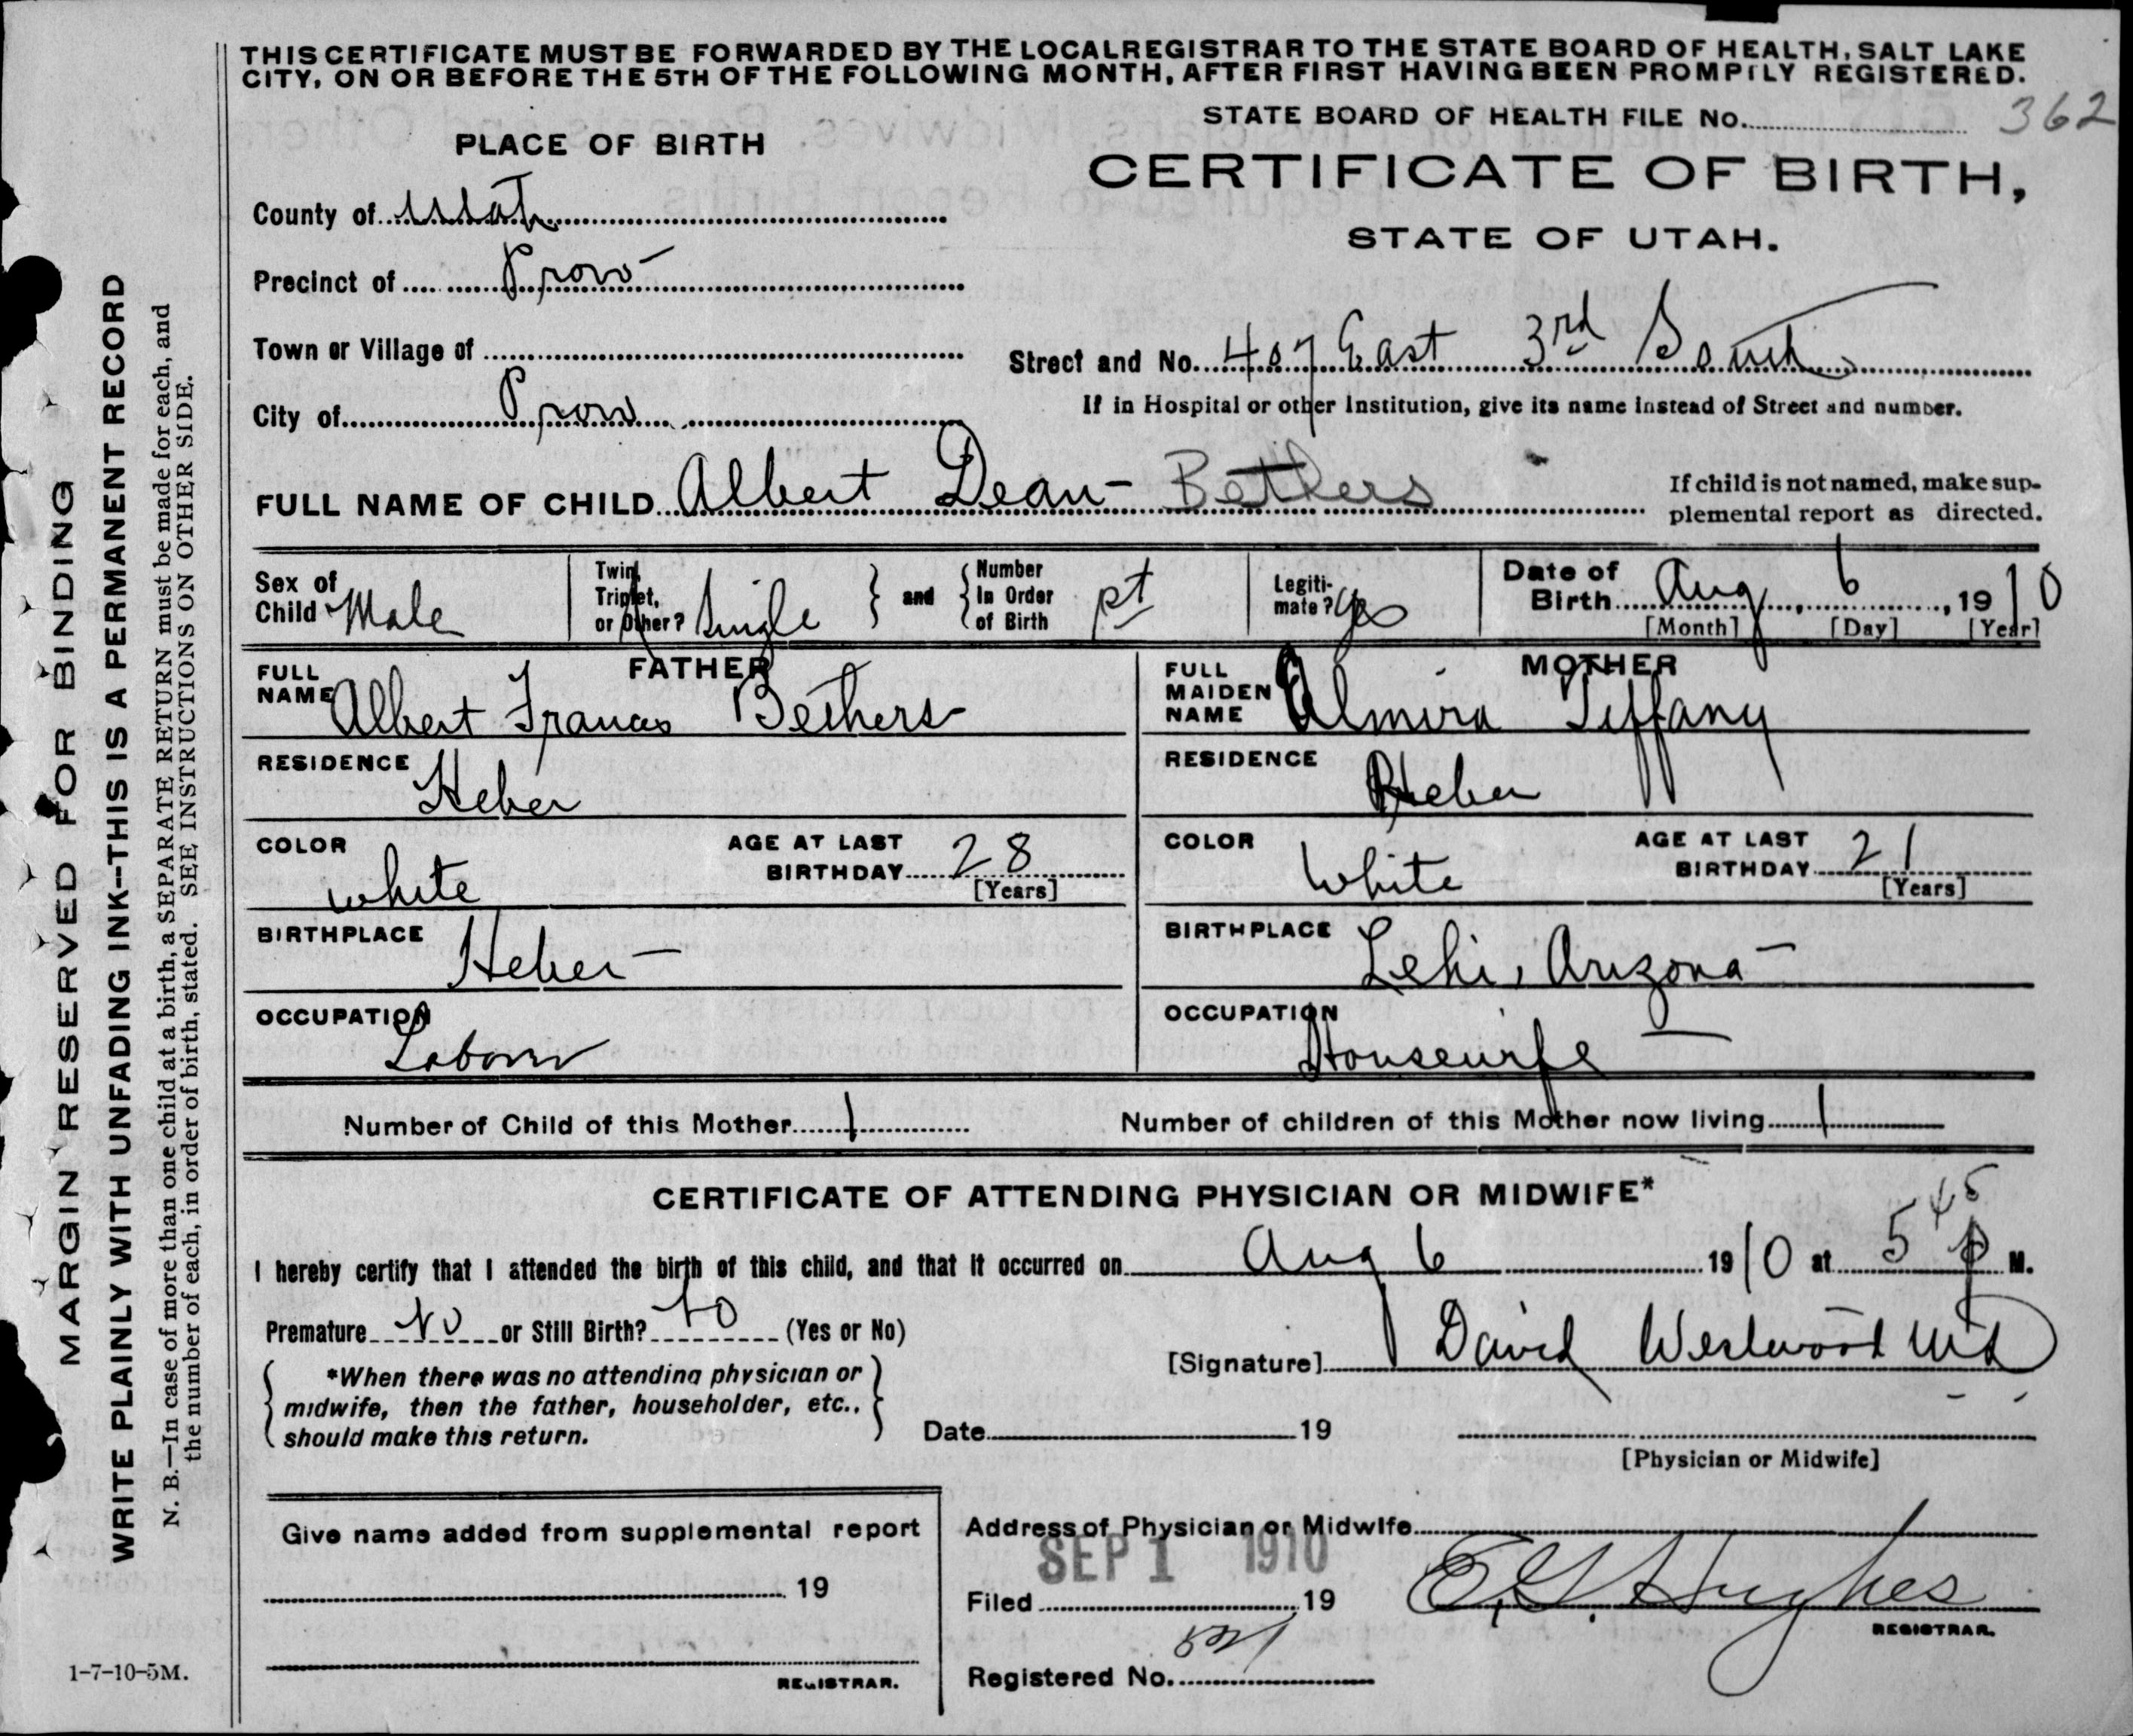 THIS CERTIFICATE MUST BE FORWARDED BY THE LOCAL REGISTRAR TO THE STATE BOARD OF HEALTH, SALT LAKE
CITY, ON OR BEFORE THE 5TH OF THE FOLLOWING MONTH, AFTER FIRST HAVING BEEN PROMPTLY REGISTERED.
STATE BOARD OF HEALTH FILE No. 362
PLACE OF BIRTH
CERTIFICATE OF BIRTH,
STATE OF UTAH.
County of Utah
Precinct of Provo
Town or Village of
Street and No. 407 East 3rd South
City of Provo
If in Hospital or other Institution, give its name instead of Street and number.
FULL NAME OF CHILD Albert Dean Bethers
If child is not named, make sup-
plemental report as directed.
Sex of Child Male
Twin, Triplet, or Other? Single
and
Number In Order of Birth
Legiti-mate? Yes
Date of Birth Aug 6, 1910
[Month] [Day] [Year]
FATHER
FULL NAME Albert Francis Bethers
RESIDENCE Heber
COLOR white
AGE AT LAST BIRTHDAY 28
[Years]
BIRTHPLACE Heber
OCCUPATION Labour
MOTHER
FULL MAIDEN NAME Almira Tiffany
RESIDENCE Heber
COLOR White
AGE AT LAST BIRTHDAY 21
[Years]
BIRTHPLACE Lehi, Arizona
OCCUPATION Housewife
Number of Child of this Mother 1
Number of children of this Mother now living 1
CERTIFICATE OF ATTENDING PHYSICIAN OR MIDWIFE*
I hereby certify that I attended the birth of this child, and that it occurred on Aug 6 1910 at 5 45 P M.
Premature No or Still Birth? No (Yes or No)
[Signature] David Westwood MD
*When there was no attending physician or
midwife, then the father, householder, etc.,
should make this return.
Date 19
[Physician or Midwife]
Give name added from supplemental report
19
REGISTRAR.
Address of Physician or Midwife
SEP 1 1910
Filed 19
E. G. Hughes
REGISTRAR.
Registered No.
MARGIN RESERVED FOR BINDING
WRITE PLAINLY WITH UNFADING INK--THIS IS A PERMANENT RECORD
N. B.—In case of more than one child at a birth, a SEPARATE RETURN must be made for each, and
the number of each, in order of birth, stated. SEE INSTRUCTIONS ON OTHER SIDE.
1-7-10-5M.